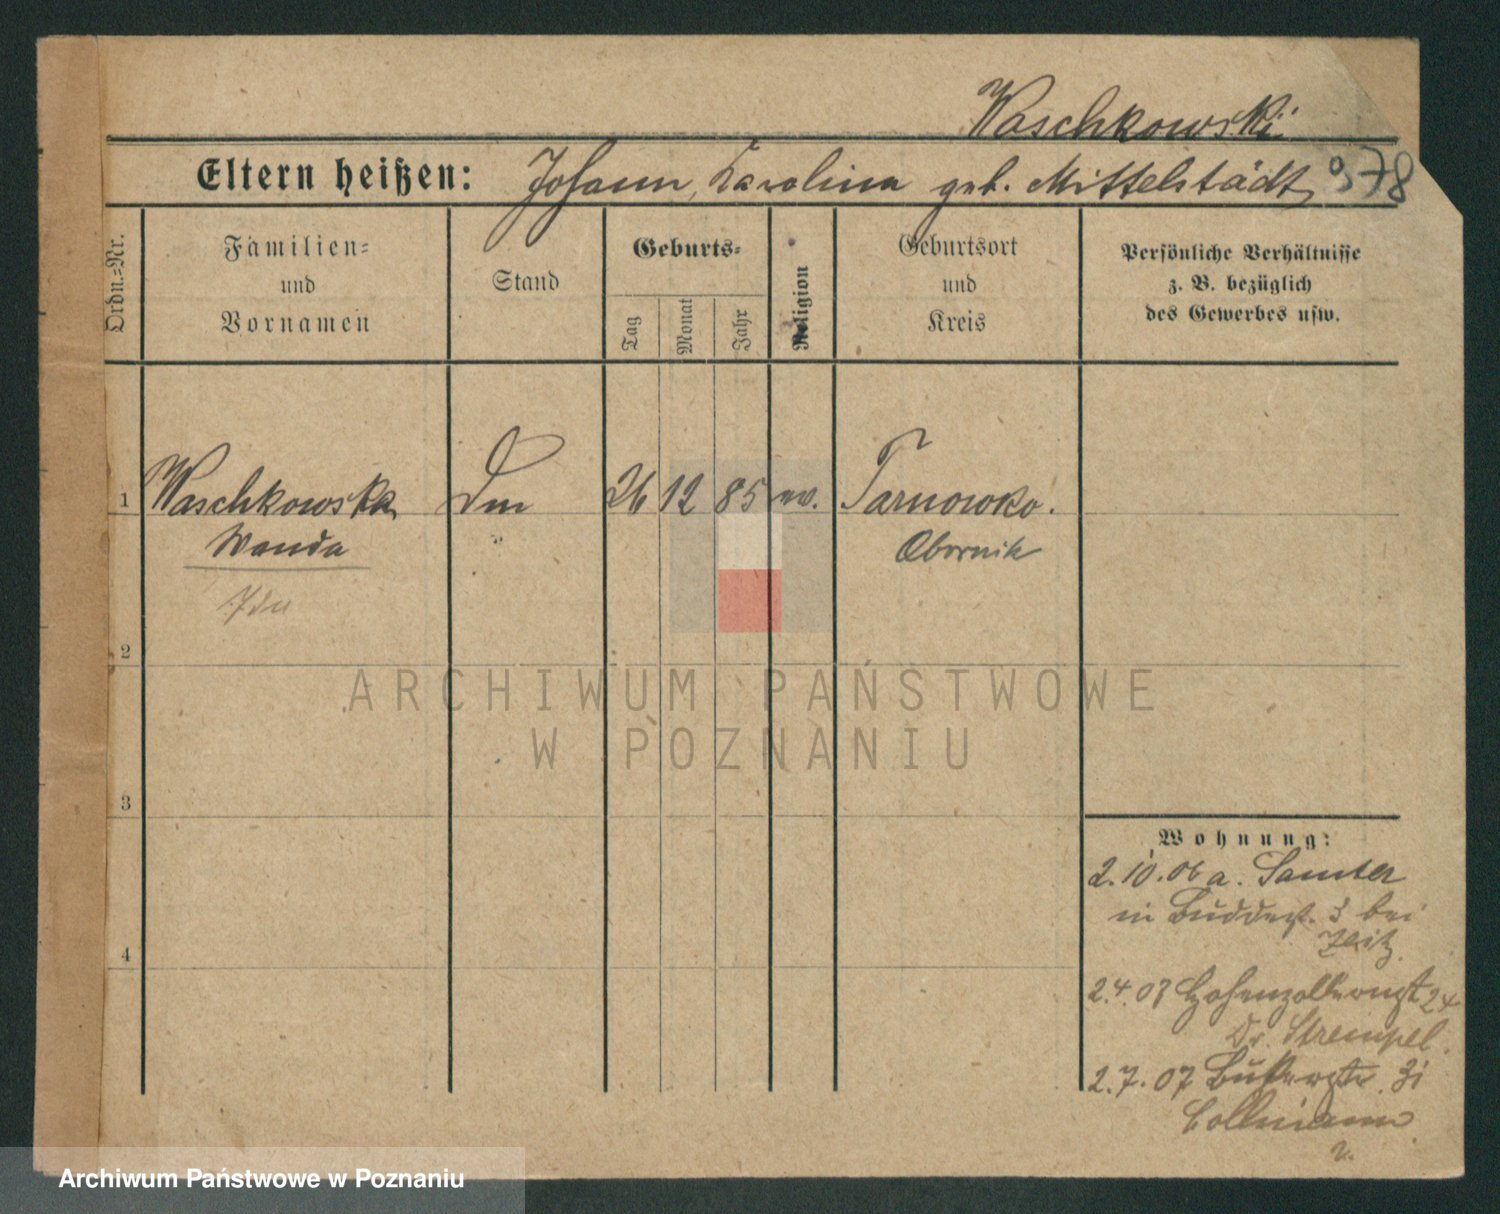 Waschkowski
Eltern heißen: Johann, Karolina geb. Mittelstädt
978
Ordn.=Nr.
Familien=
und
Vornamen
Stand
Geburts=
Tag
Monat
Jahr
Religion
Geburtsort
und
Kreis
Persönliche Verhältnisse
z. B. bezüglich
des Gewerbes usw.
1 Waschkowska 26 12 85 ev. Tarnowko.
Wanda Obornik
2
3
4
Wohnung:
2.10.06 a. Samter
in Buddest. 3 bei
2.4.07 Hohenzollernst 24
Dr. Strempel.
2.7.07
Collmann
ARCHIWUM PAŃSTWOWE
W POZNANIU
Archiwum Państwowe w Poznaniu